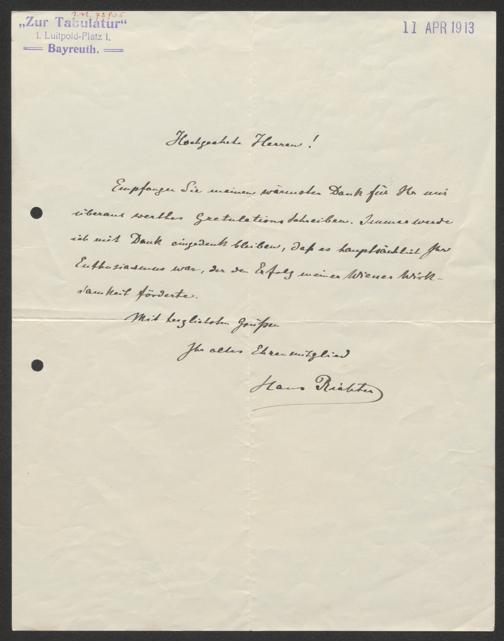 J.N. 73905
„Zur Tabulatur“
1. Luitpold-Platz 1.
Bayreuth.
11 APR 1913
Hochgeehrte Herren!
Empfangen Sie meinen wärmsten Dank für Ihr mir
überaus werthes Gratulations Schreiben. Immer werde
ich mit Dank eingedenk bleiben, daß es hauptsächlich Ihr
Enthusiasmus war, der den Erfolg meiner Wiener Wirk-
samkeit förderte.
Mit herzlichsten Grüßen
Ihr altes Ehrenmitglied
Hans Richter